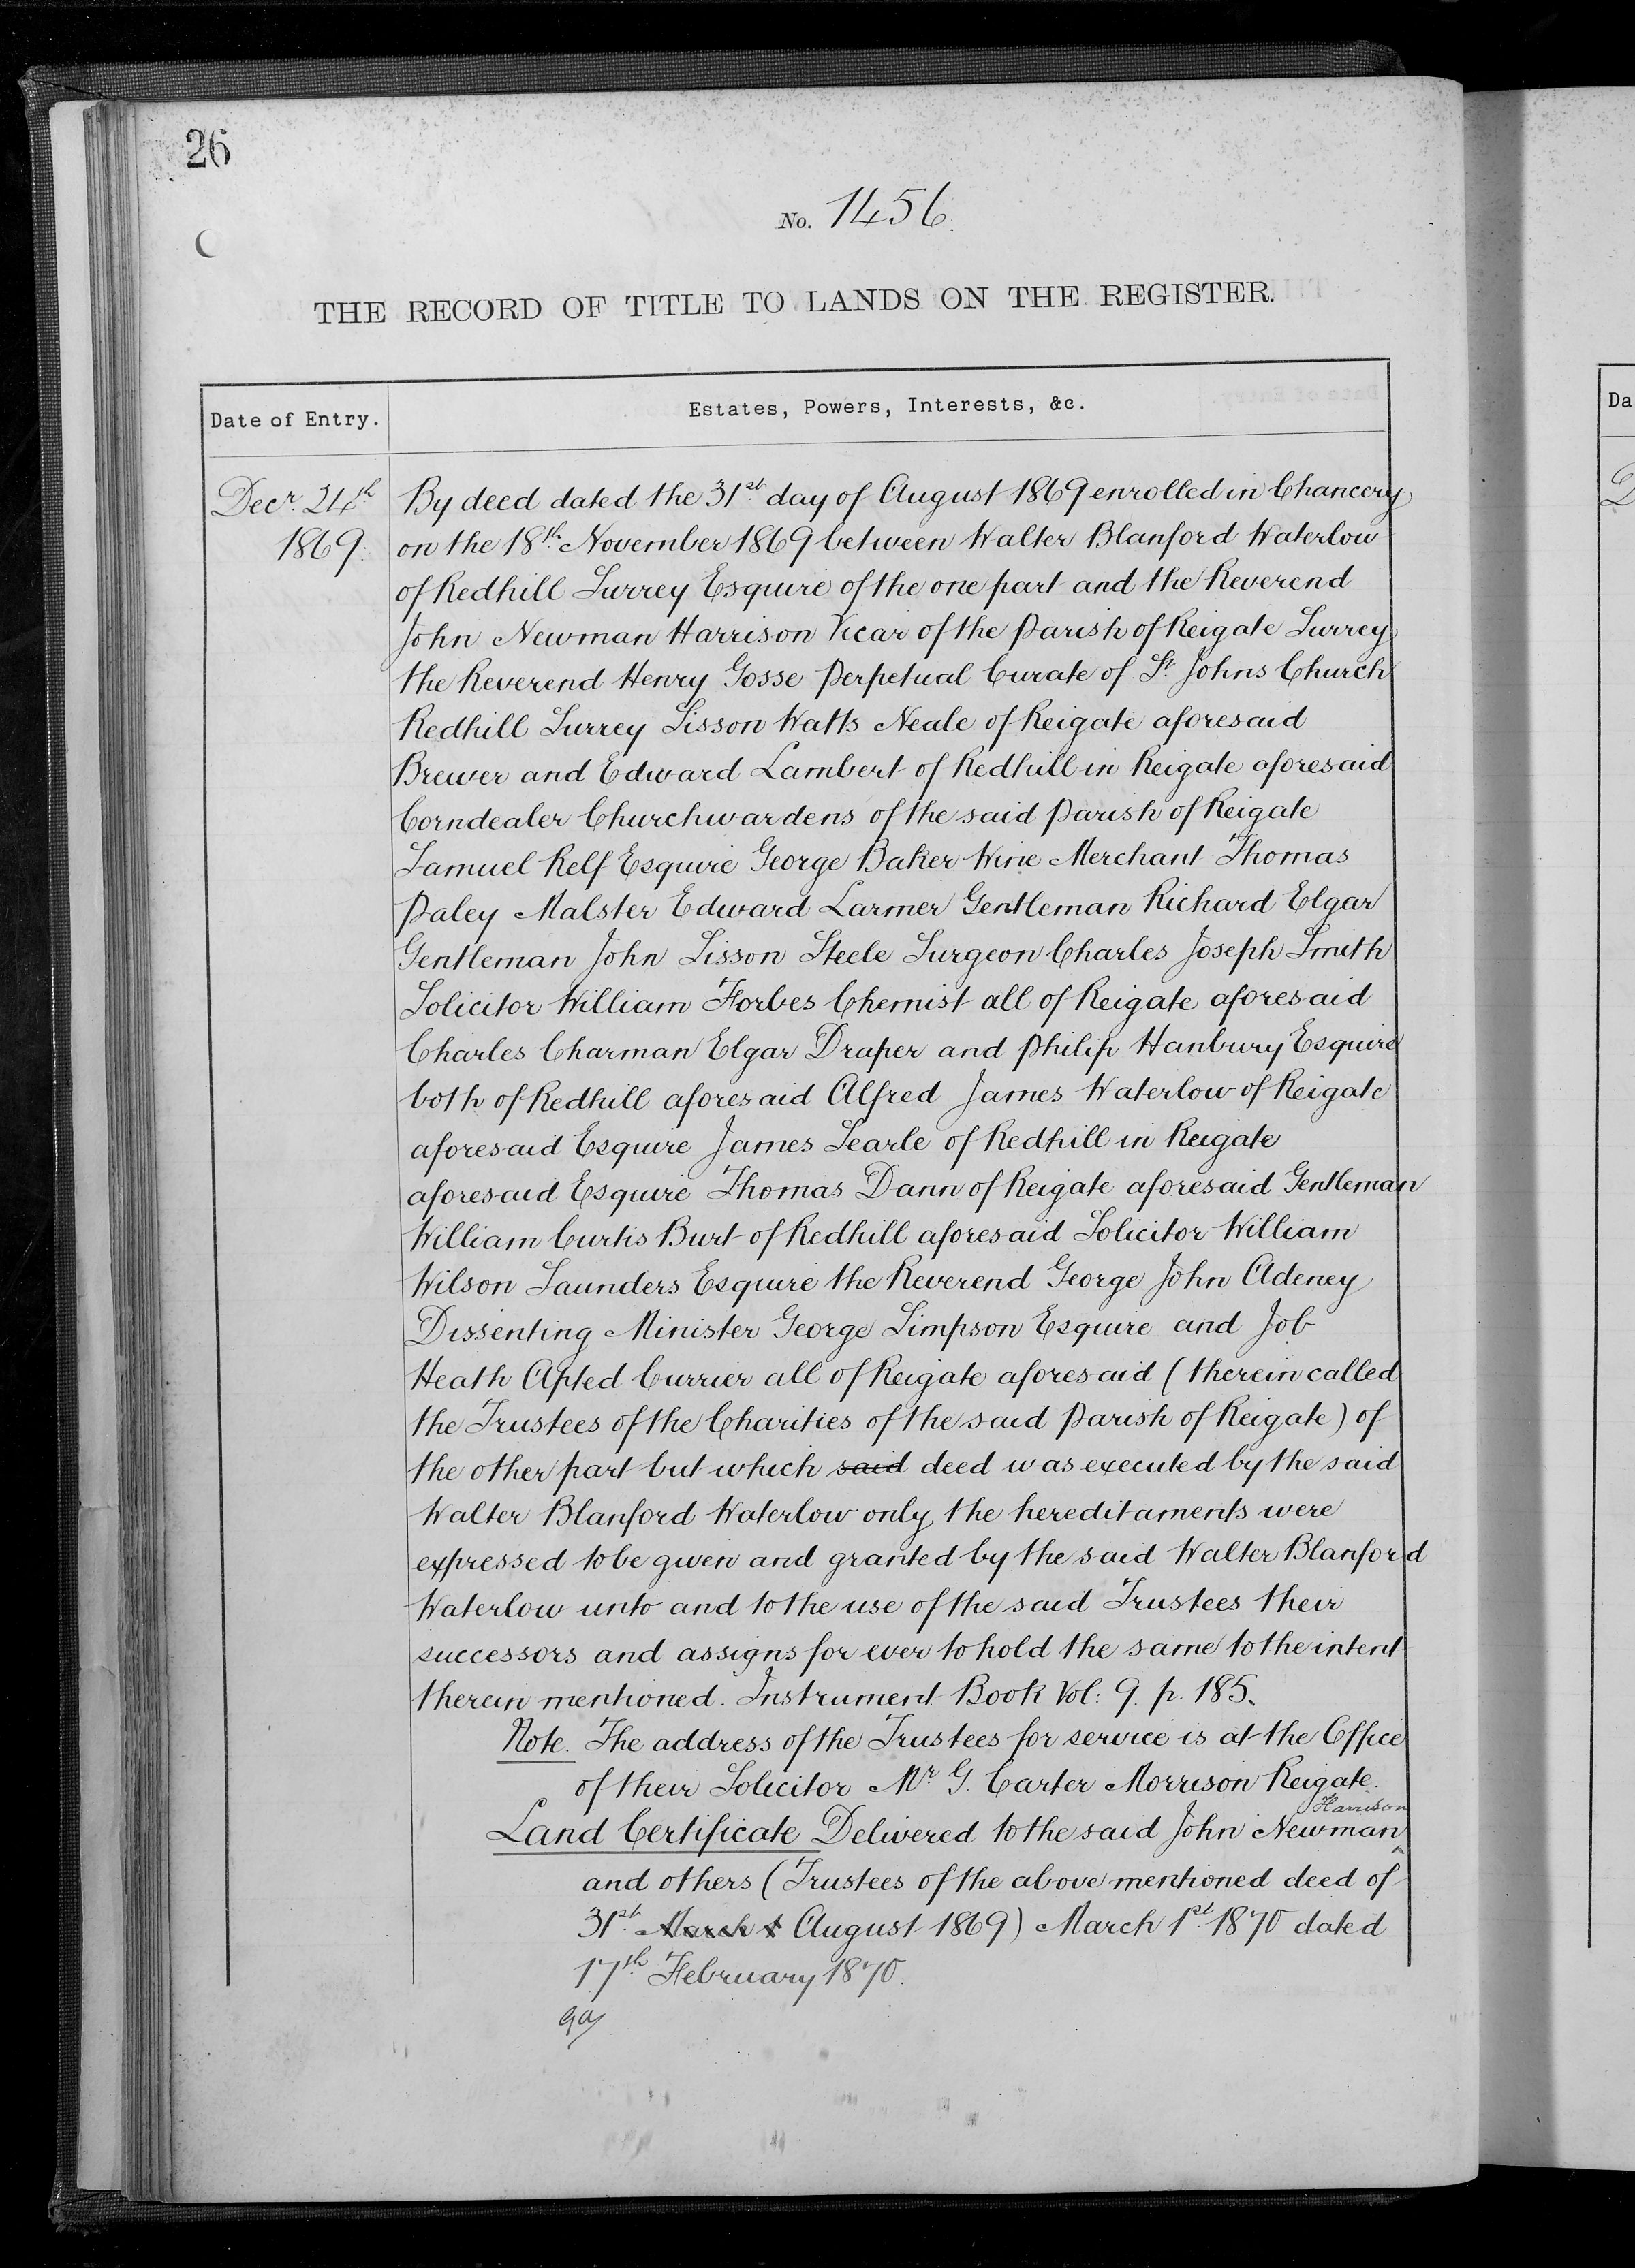 26
No. 1456.
THE RECORD OF TITLE TO LANDS ON THE REGISTER.
Date of Entry.
Estates, Powers, Interests, &c.
Decr. 24th
1869.
By deed dated the 31st day of August 1869 enrolled in Chancery
on the 18th November 1869 between Walter Blanford Waterlow
of Redhill Surrey Esquire of the one part and the Reverend
John Newman Harrison Vicar of the Parish of Reigate Surrey
the Reverend Henry Gosse Perpetual Curate of St. Johns Church
Redhill Surrey Sisson Watts Neale of Reigate aforesaid
Brewer and Edward Lambert of Redhill in Reigate aforesaid
Corndealer Churchwardens of the said Parish of Reigate
Samuel Relf Esquire George Baker Wine Merchant Thomas
Paley Malster Edward Larmer Gentleman Richard Elgar
Gentleman John Sisson Steele Surgeon Charles Joseph Smith
Solicitor William Forbes Chemist all of Reigate aforesaid
Charles Charman Elgar Draper and Philip Hanbury Esquire
both of Redhill aforesaid Alfred James Waterlow of Reigate
aforesaid Esquire James Searle of Redhill in Reigate
aforesaid Esquire Thomas Dann of Reigate aforesaid Gentleman
William Curtis Burt of Redhill aforesaid Solicitor William
Wilson Saunders Esquire the Reverend George John Adeney
Dissenting Minister George Simpson Esquire and Job
Heath Apted Currier all of Reigate aforesaid (therein called
the Trustees of the Charities of the said Parish of Reigate) of
the other part but which said deed was executed by the said
Walter Blanford Waterlow only, the hereditaments were
expressed to be given and granted by the said Walter Blanford
Waterlow unto and to the use of the said Trustees their
successors and assigns for ever to hold the same to the intent
therein mentioned. Instrument Book Vol: 9. p. 185.
Note. The address of the Trustees for service is at the Office
of their Solicitor Mr. G. Carter Morrison Reigate.
Harrison
Land Certificate Delivered to the said John Newman
and others (Trustees of the above mentioned deed of
31st March 1 August 1869) March 1st 1870 dated
17th February 1870.
Da